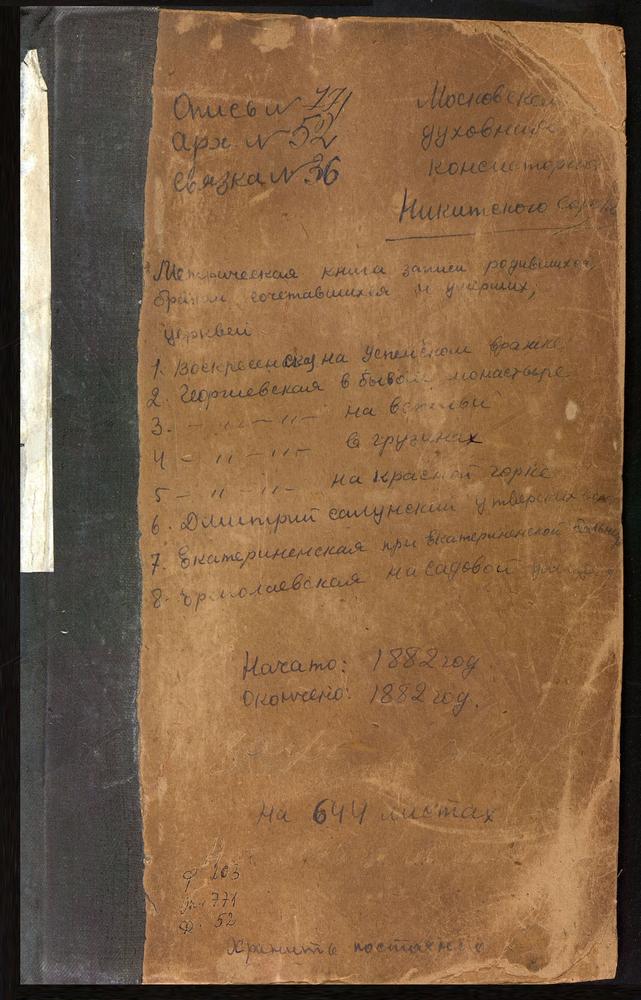 Опись № 771
Арх № 52
Связка № 36
Московской
духовной
консистории
Никитского Сорока
Метрическая книга записи родившихся,
браком сочетавшихся и умерших,
церквей
1. Воскресенская на Успенском вражке
2. Георгиевская в бывом монастыре
3. – " – " – на вспольи
4 – " – " – в грузинах
5 – " – " – на Красной горке
6. Димитрий салунский у тверских
7. Екатериненская при Екатериненской больнице
8. Ермолаевская на Садовой улице
Начато: 1882 год
Окончено: 1882 год.
На 644 листах
Ф 203
оп. 771
Д. 52
Хранить постоянно